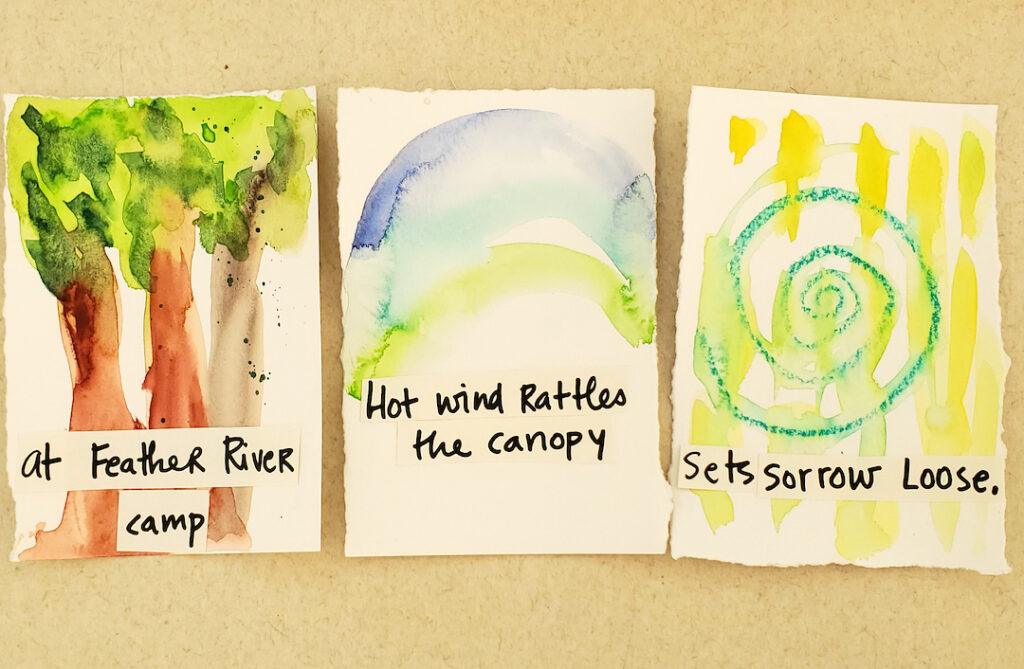 at Feather River
camp
Hot wind Rattles
the canopy
Sets Sorrow Loose.